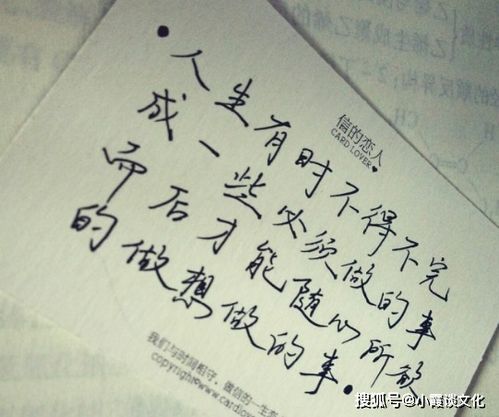 信的恋人
CARD LOVER
•人生有时不得不完
成一些必须做的事
而后才能随心所欲
的做想做的事•
我们与时间相守
copyright©www.cardlov
搜狐号@小霞谈文化